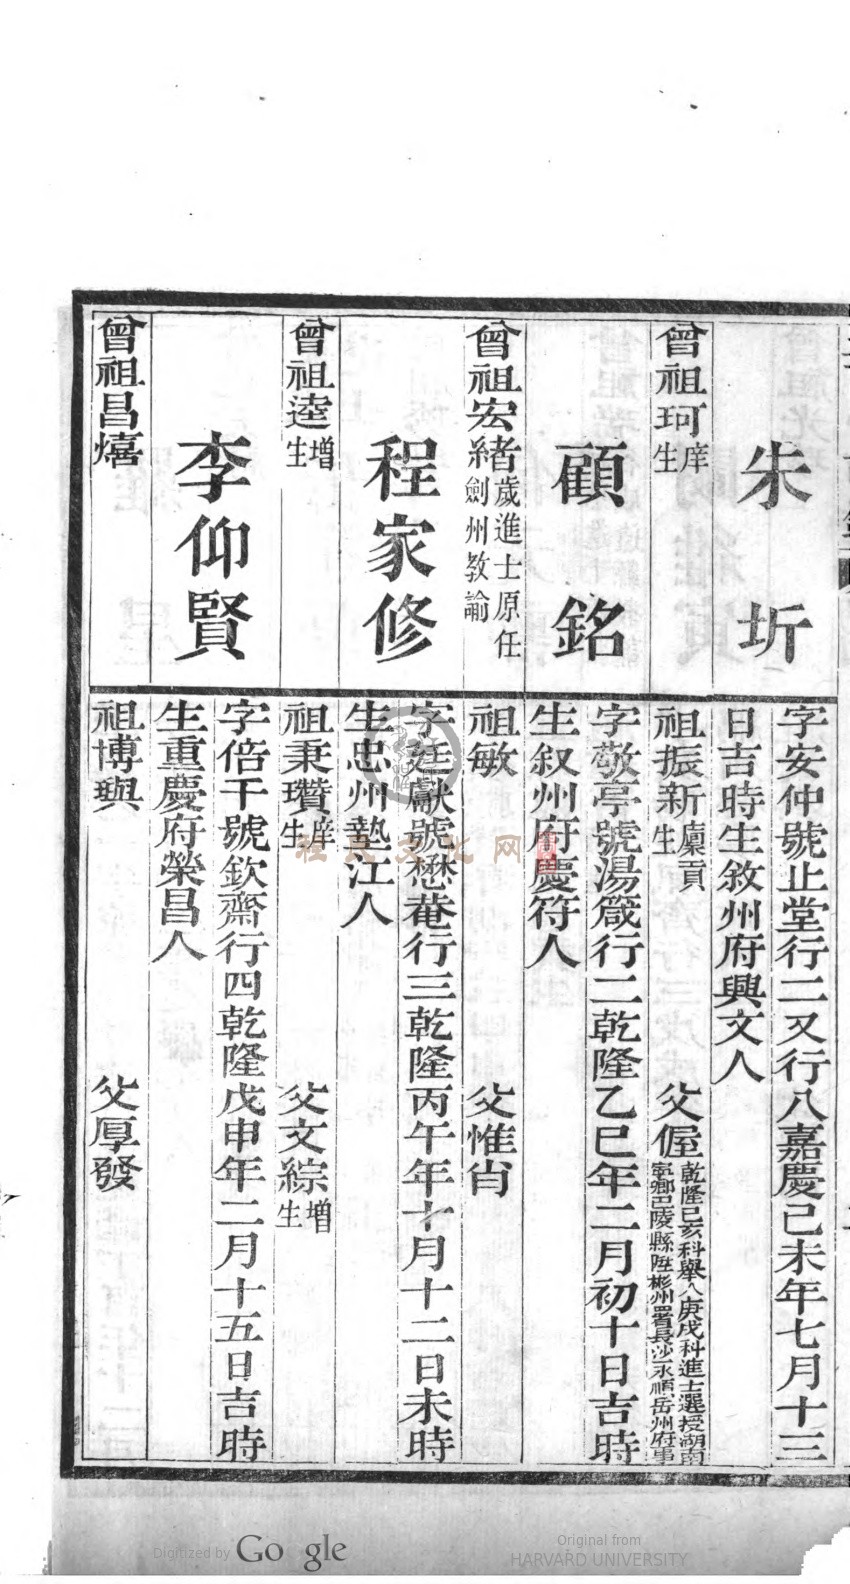 朱圻
字安仲號止堂行二又行八嘉慶己未年七月十三
日吉時生敘州府興文人
曾祖珂庠生
祖振新廩貢生
父偓乾隆己亥科舉人庚戌科進士選授湖南寧鄉巴陵縣陞郴州署長沙永順岳州府事
顧銘
字敬亭號湯箴行二乾隆乙巳年二月初十日吉時
生叙州府慶符人
曾祖宏緒歲進士原任劍州教諭
祖敏
父惟肖
程家修
字廷獻號懋菴行三乾隆丙午年十月十二日未時
生忠州墊江人
曾祖逵增生
祖秉瓚庠生
父文綜增生
李仰賢
字倍千號欽齋行四乾隆戊申年二月十五日吉時
生重慶府榮昌人
曾祖昌熺
祖博輿
父厚發
程氏文化网
Digitized by Google
Original from
HARVARD UNIVERSITY